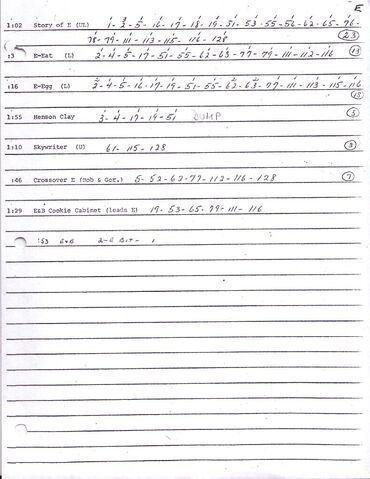 E
1:02 Story of E (UL) 1- 2- 5- 16- 17- 18- 19- 51- 53- 55- 56- 62- 65- 76-
78- 79- 111- 113- 115- 116- 128 23
:3 E-Eat (L) 2- 4- 5- 17- 51- 55- 62- 63- 77- 79- 111- 112- 116 13
:16 E-Egg (L) 2- 4- 5- 16- 17- 19- 51- 55- 62- 63- 77- 111- 113- 115- 116
15
1:55 Henson Clay 3- 4- 17- 19- 51 DUMP 5
1:10 Skywriter (U) 61- 115- 128 3
:46 Crossover E (Bob & Ger.) 5- 52- 62- 77- 112- 116- 128 7
1:29 E&B Cookie Cabinet (leads E) 19- 53- 65- 79- 111- 116
:53 E&B 2-E BIT- 1